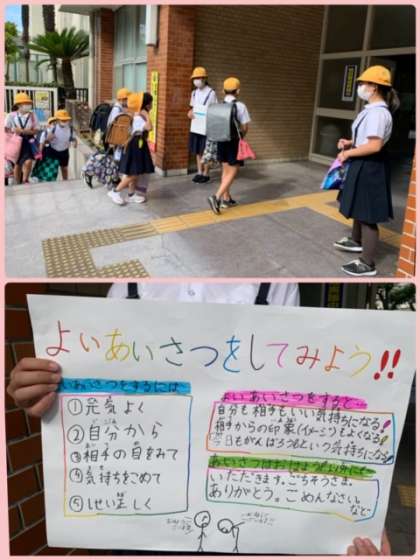 よいあいさつをしてみよう!!
よいあいさつをするには
①元気よく
②自分から
③相手の目をみて
④気持ちをこめて
⑤しせい正しく
よいあいさつをすると…
自分も相手もいい気持ちになる!
相手からの印象(イメージ)もよくなる!
今日もがんばろうという気持ちになる!
いただきます。ごちそうさま。
ありがとう。ごめんなさい。
など